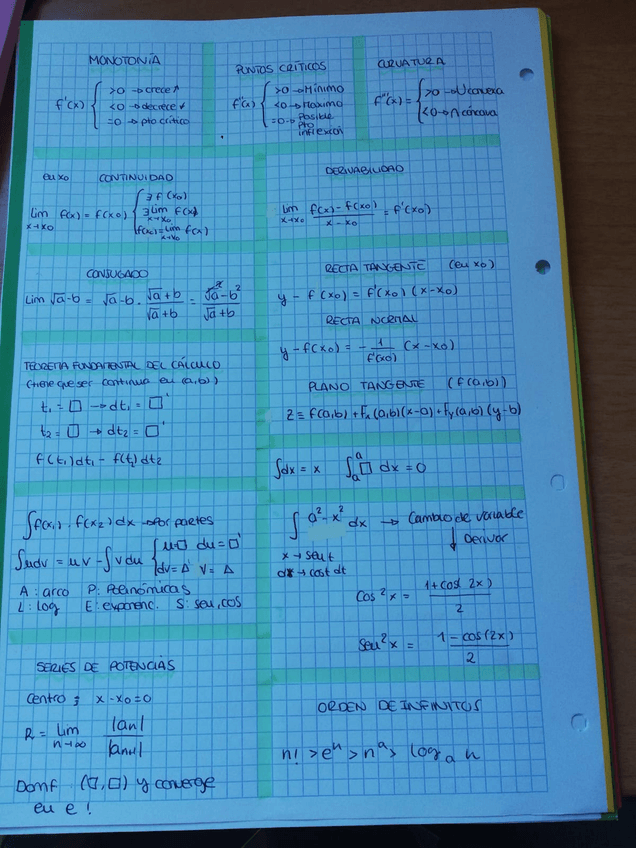 MONOTONÍA
f'(x) { >0 → crece ↗
<0 → decrece ↘
=0 → pto crítico
PUNTOS CRÍTICOS
f''(x) { >0 → Mínimo
<0 → Máximo
=0 → Posible
pto
inflexión
CURVATURA
f''(x) = { >0 → U convexa
<0 → ∩ cóncava
en x0 CONTINUIDAD
lim x→x0 f(x) = f(x0) { ∃ f(x0)
∃ lim x→x0 f(x)
f(x0) = lim x→x0 f(x)
DERIVABILIDAD
lim x→x0 (f(x) - f(x0))/(x - x0) = f'(x0)
CONJUGADO
lim √a - b = √a - b · (√a + b)/(√a + b) = (√a² - b²)/(√a + b)
RECTA TANGENTE (en x0)
y - f(x0) = f'(x0) (x - x0)
RECTA NORMAL
y - f(x0) = - 1/f'(x0) (x - x0)
PLANO TANGENTE (f(a,b))
z = f(a,b) + fx(a,b)(x-a) + fy(a,b)(y-b)
TEOREMA FUNDAMENTAL DEL CÁLCULO
(tiene que ser continua en (a,b))
t1 = □ → dt1 = □'
t2 = □ → dt2 = □'
f(t1)dt1 - f(t2)dt2
∫dx = x ∫ₐᵃ □ dx = 0
∫f(x1) · f(x2) dx → por partes
∫udv = uv - ∫vdu { u=□ du=□'
dv=Δ' v=Δ
A: arco P: Polinómicas
L: log E: exponenc. S: sen, cos
∫ a² - x² dx → Cambio de variable
↓ Derivar
x → sen t
dx → cost dt
cos² x = (1 + cos(2x))/2
sen² x = (1 - cos(2x))/2
SERIES DE POTENCIAS
centro; x - x0 = 0
R = lim n→∞ |an|/|an+1|
Domf (□,□) y converge
en e!
ORDEN DE INFINITOS
n! > eⁿ > nᵃ > logₐ n